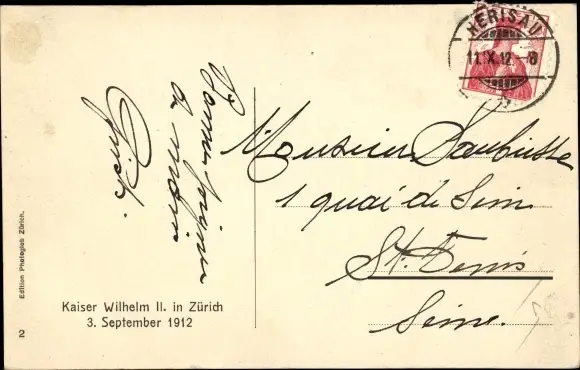 HERISAU
11.IX.12.-8
Bonne journée
à
Monsieur Daubusse
1 quai de Seine
St. Denis
Seine.
Kaiser Wilhelm II. in Zürich
3. September 1912
Edition Photoglob Zürich.
2